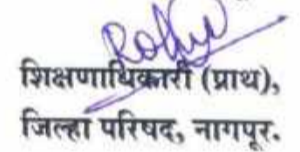 शिक्षणाधिकारी (प्राथ),
जिल्हा परिषद, नागपूर.